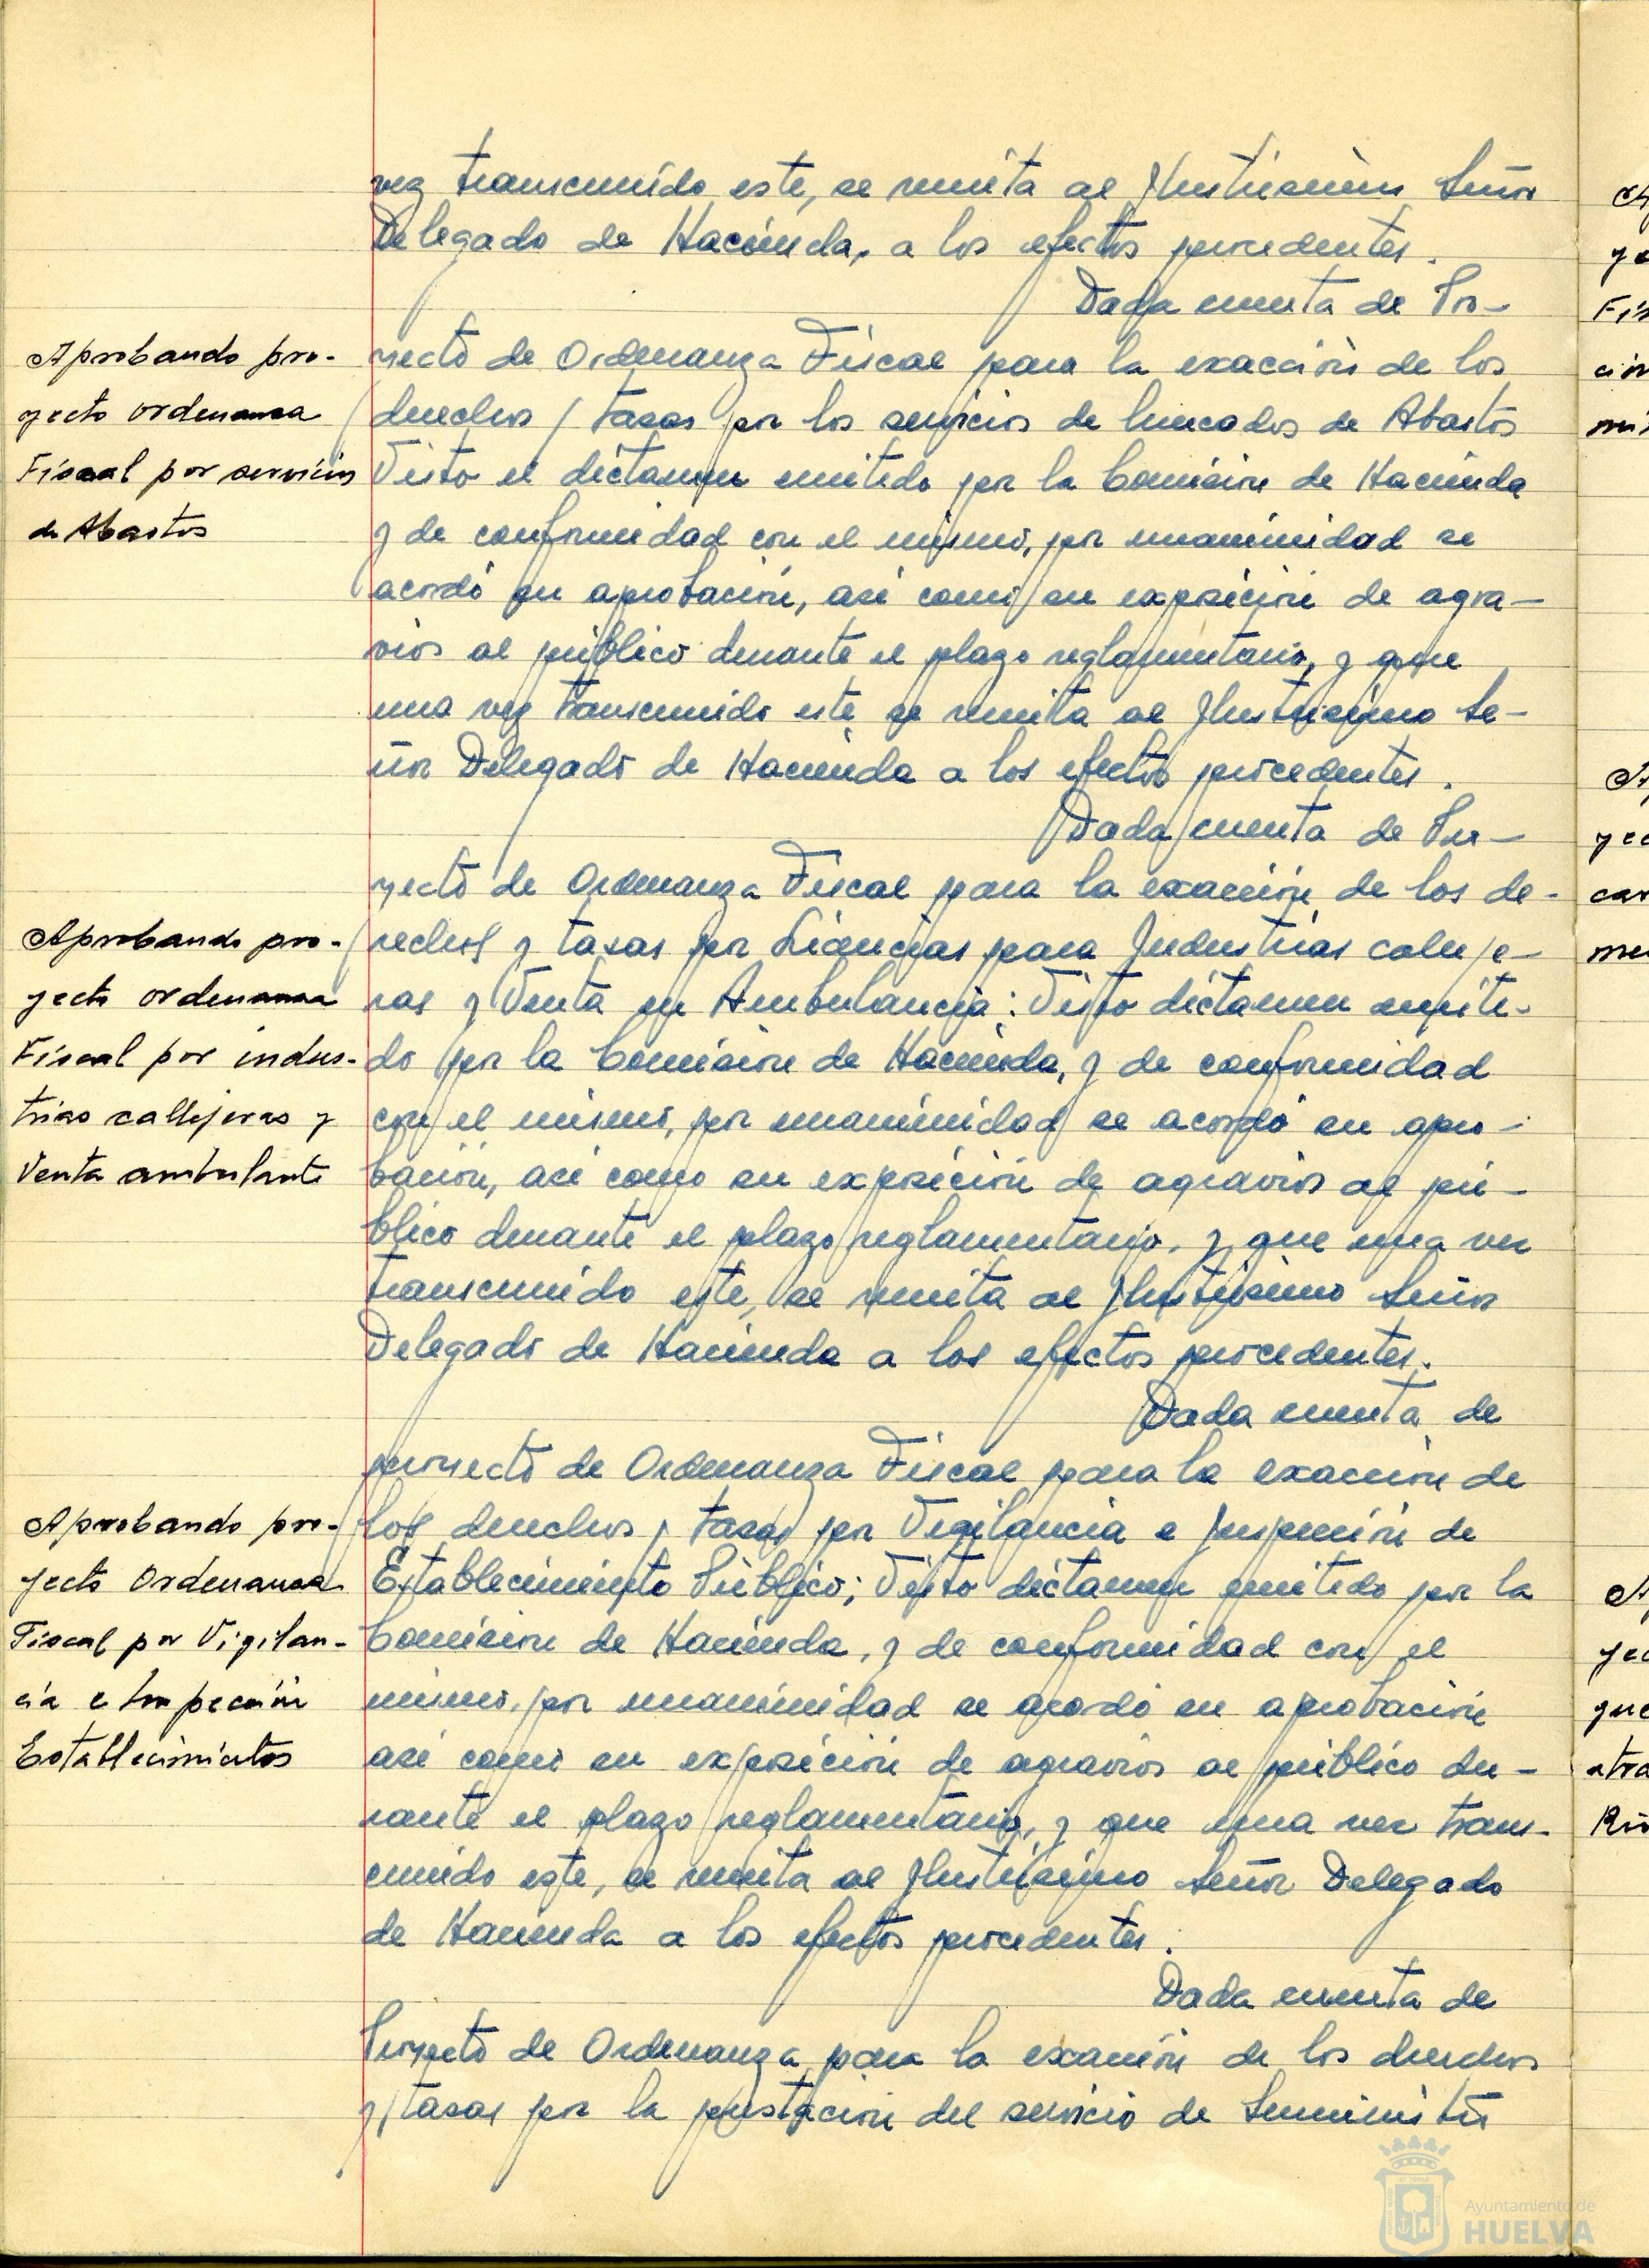 vez transcurrido este, se remita al Ilustrisimo Señor
Delegado de Hacienda, a los efectos procedentes.
Dada cuenta de Pro-
Aprobando pro-
yecto ordenanza
Fiscal por servicios
de Abastos
yecto de Ordenanza Fiscal para la exacción de los
derechos y tasas por los servicios de Mercados de Abastos
Visto el dictamen emitido por la Comisión de Hacienda
y de conformidad con el mismo, por unanimidad se
acordó su aprobación, asi como su exposición de agra-
vios al público durante el plazo reglamentario, y que
una vez transcurrido este se remita al Ilustrisimo Se-
ñor Delegado de Hacienda a los efectos procedentes.
Dada cuenta de Pro-
yecto de Ordenanza Fiscal para la exacción de los de-
Aprobando pro-
yecto ordenanza
Fiscal por indus-
trias callejeras y
Venta ambulante
rechos y tasas por Licencias para Industrias calleje-
ras y Venta en Ambulancia: Visto dictamen emiti-
do por la Comisión de Hacienda, y de conformidad
con el mismo, por unanimidad se acordó su apro-
bación, asi como su exposición de agravios al pú-
blico durante el plazo reglamentario, y que una vez
transcurrido este, se remita al Ilustrisimo Señor
Delegado de Hacienda a los efectos procedentes.
Dada cuenta de
proyecto de Ordenanza Fiscal para la exacción de
Aprobando pro-
yecto Ordenanza
Fiscal por Vigilan-
cia e Inspección
Establecimientos
los derechos y tasas por Vigilancia e Inspección de
Establecimiento Público; Visto dictamen emitido por la
Comisión de Hacienda, y de conformidad con el
mismo, por unanimidad se acordó su aprobación
asi como su exposición de agravios al público du-
rante el plazo reglamentario, y que una vez trans-
currido este, se remita al Ilustrisimo Señor Delegado
de Hacienda a los efectos procedentes.
Dada cuenta de
Proyecto de Ordenanza para la exacción de los derechos
y tasas por la prestación del servicio de Suministro
Ayuntamiento de
HUELVA